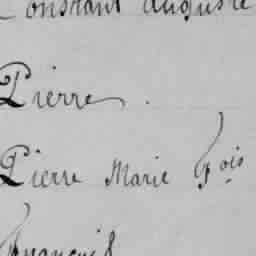 Constant Auguste
Pierre
Pierre Marie F.ois